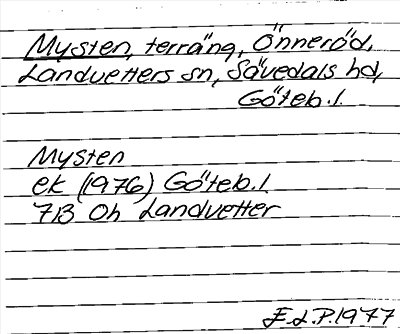 Mysten, terräng, Önneröd,
Landvetters sn, Sävedals hd,
Göteb. l.
Mysten
ek (1976) Göteb. l
7B 0h Landvetter
E.L.P. 1977